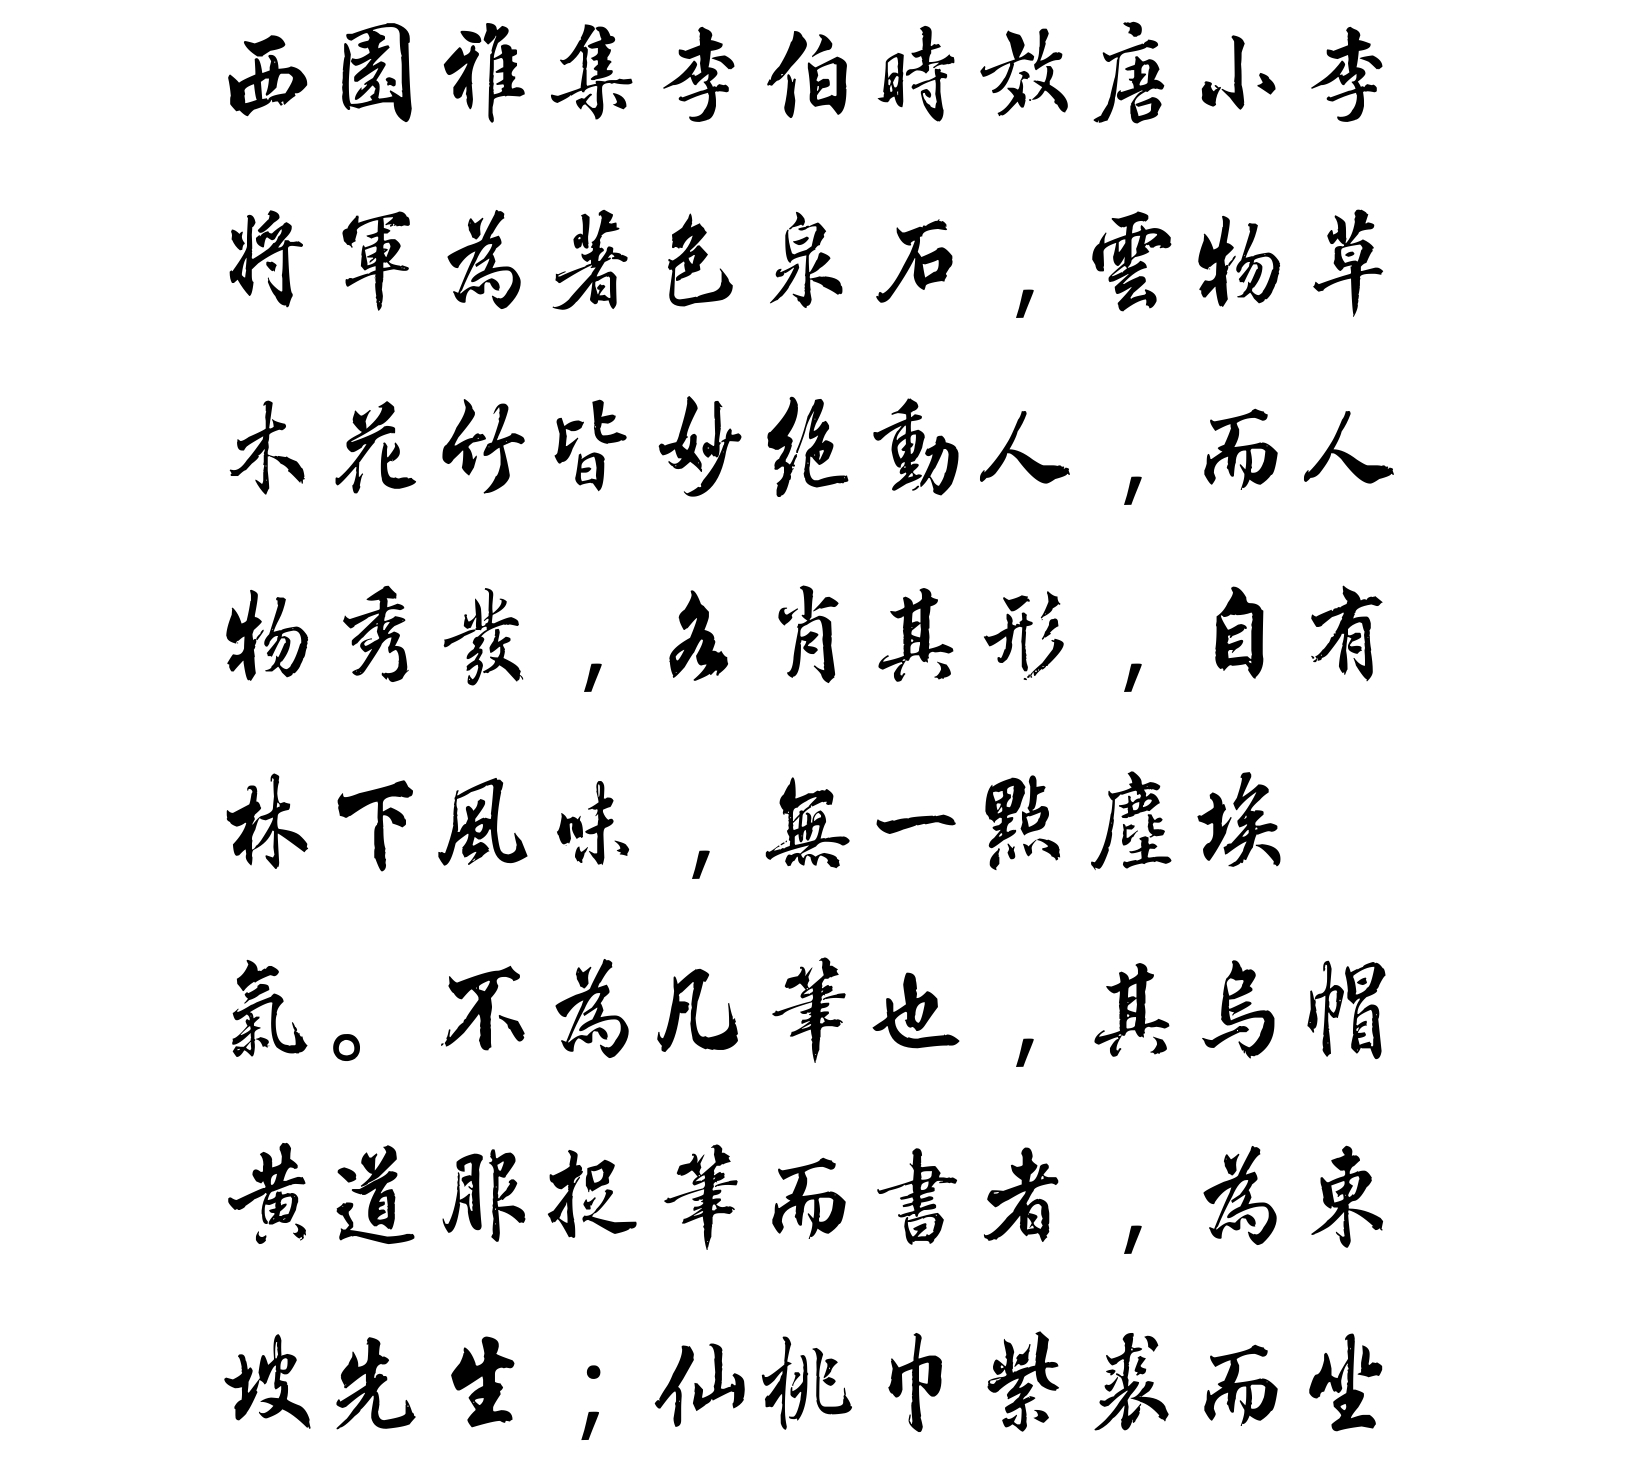 西園雅集李伯時效唐小李
將軍為著色泉石，雲物草
木花竹皆妙絶動人，而人
物秀發，各肖其形，自有
林下風味，無一點塵埃
氣。不為凡筆也，其烏帽
黃道服捉筆而書者，為東
坡先生；仙桃巾紫裘而坐